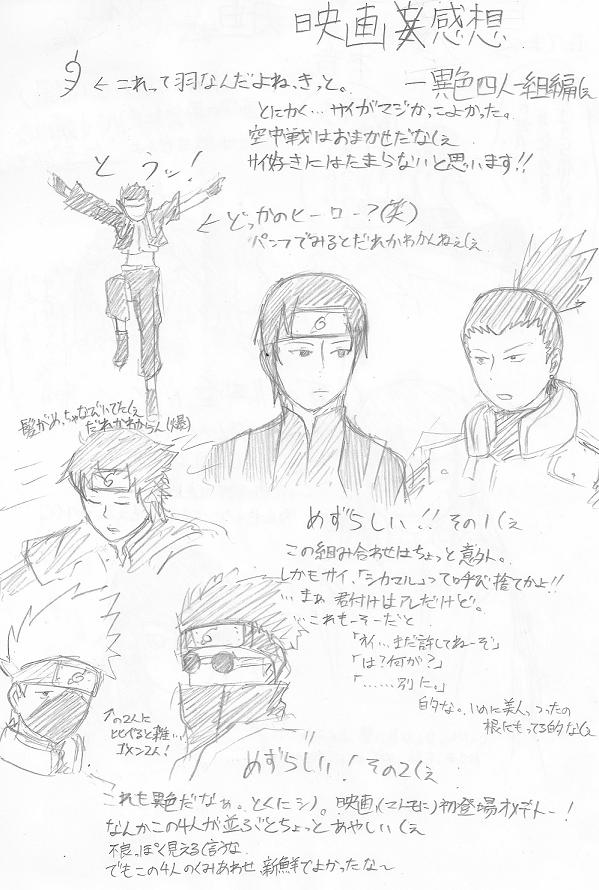 映画感想
← これって羽なんだよね、きっと。
一異色四人組編(ぇ
とにかく…サイがマジかっこよかった。
空中戦はおまかせだな(ぇ
サイ好きにはたまらないと思います!!
とうッ!
← どっかのヒーロー?(笑)
パンフでみるとだれかわかんねぇ(ぇ
髪がめっちゃなびいてた(ぇ
だれかわからん(爆)
めずらしい!! その1(ぇ
この組み合わせはちょっと意外。
しかもサイ、「シカマル」って呼び捨てかよ!!
…まぁ君付けはアレだけど。
…これもーそーだと
「オイ…まだ許してねーぞ」
「は?何が?」
「……別に。」
的な。いのに美人っつったの
根にもってる的な(ぇ
↑の2人に
比べると雑…
ゴメン2人!
めずらしい! その2(ぇ
これも異色だなぁ。とくにシノ。映画(マトモに)初登場オメデトー!
なんかこの4人が並ぶとちょっとあやしい(ぇ
不良っぽく見える(言うな
でもこの4人のくみあわせ、新鮮でよかったな〜